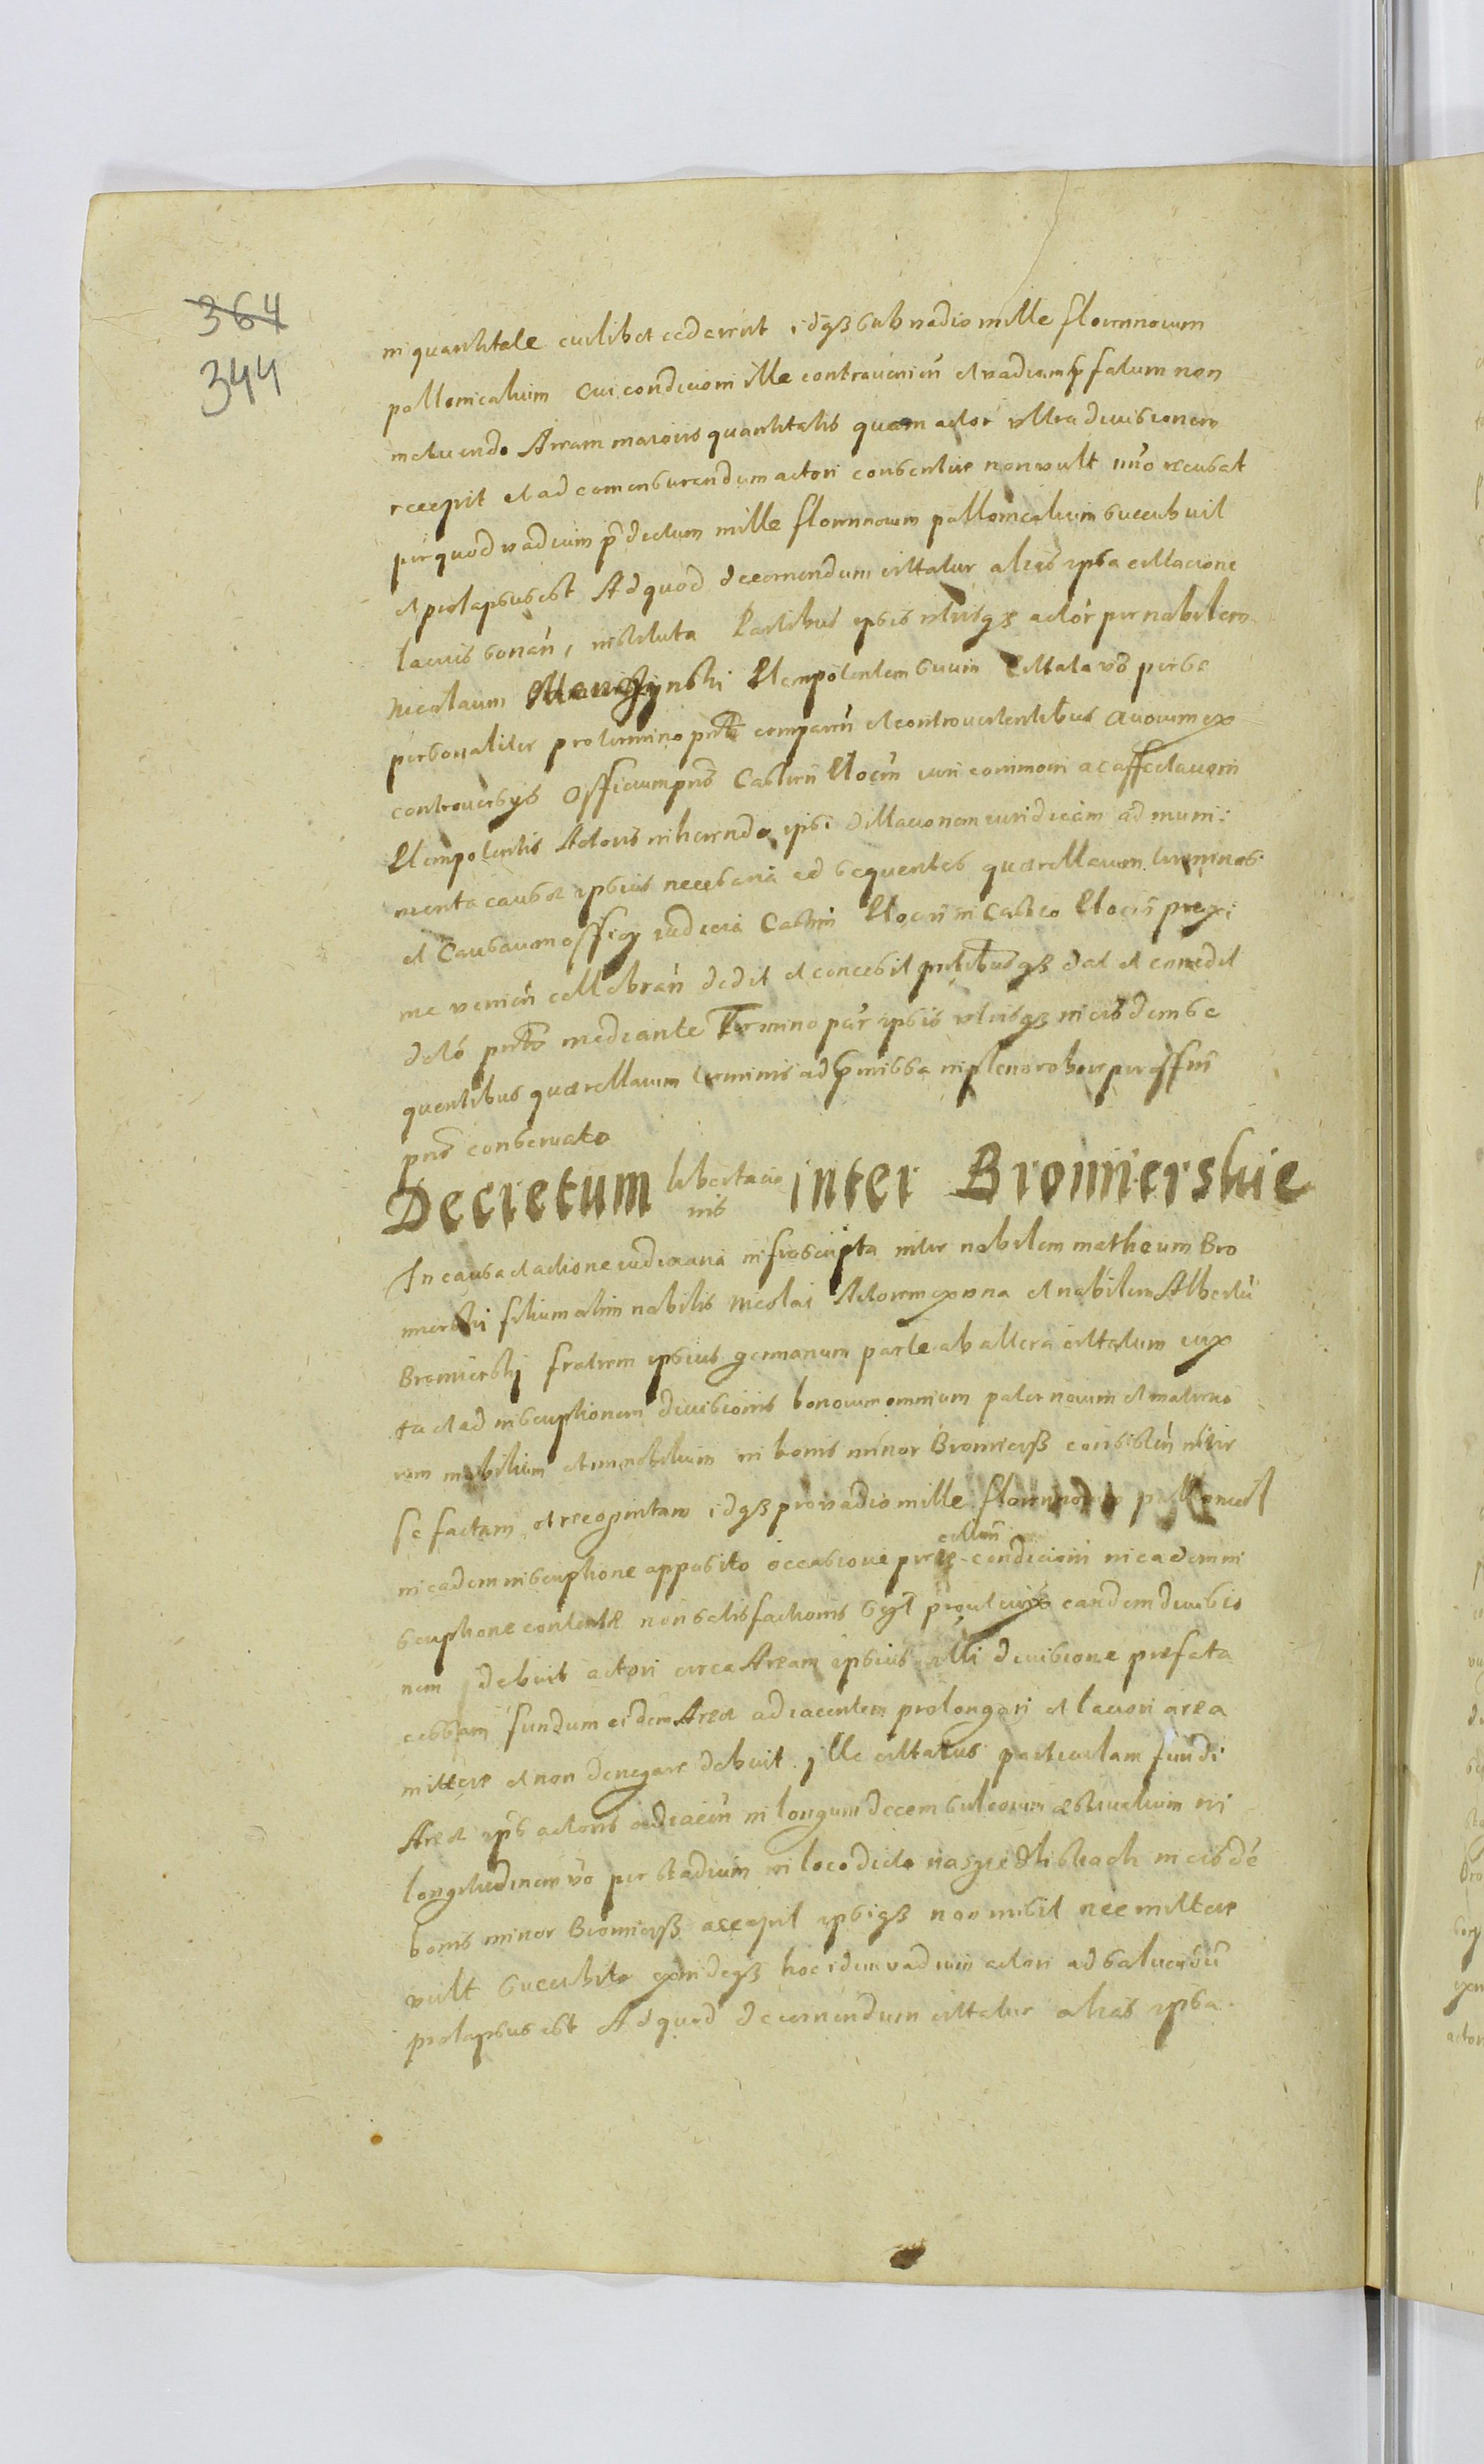 364
344
in quantitate cuilibet cederent idqȝ sub vadio mille florinorum
pollonicalium Cui condicioni ille contravenien et vadium p̄fatum non
metuendo Aream maioris quantitatis quam actor ultra divisionem
recepit et ad comensurandum actori consentire non vult imo recusat
per quod vadium p̄dictum mille florinorum pollonicalium succubuit
et prolapsus est Ad quod decernendum citatur alias ipsa citacione
lacius sonan, instituta Partibus ipsis utrisqȝ actor per nobilem
Nicolaum Plenipotentem suum Cittatus vo per se
personaliter pro termino pnti comparen et controvertentibus Quorum ex
controversys Officium pns Castren Plocen iuri communi ac affectacioni
Plenipotentis Actoris inherendo ipsi dillacionem iuridicam ad muni:
menta causae ipsius necessaria ad sequentes quaerellarum terminos
et Causarum officy iudicia Castrin Plocen in Castro Plocen proxi
me venien cellebran dedit et concessit pntibusqȝ dat et concedit
dcto pnti mediante Termino par ipsis utrisqȝ in eisdem se
quentibus quaerellarum terminis ad p̄missa in pleno robore per offm
pns conservato
Decretum libertacio inter Bromierskie
nis
In causa et actione iudiciaria infrascripta inter nobilem Matheum Bro
mierski filium olim nobilis Nicolai Actorem ex una et nobilem Albertu
Bromierski fratrem ipsius germanum parte ab altera cittatum iux
ta et ad inscriptionem divisionis bonorum omnium paternorum et materno
rum mobilium et immobilium in bonis minor Bromierz consisten inter
se factam et recognitam idqȝ pro vadio mille florinorum pollonical
in eadem inscriptione apposito occasione per citatum condicioni in eadem in
scriptione contentae non satisfactionis eandem divisio
nem debuit actori circa Aream ipsius illi divisione praefata
cessam fundum eidem Areae adiacentem prolongari et laciori area
mittere et non denegare debuit ille cittatus particulam fundi
Areae ips actoris adiacen in longum decem sulcorum aestivalium in
longitudinem vo per stadium in loco dicto na in eisde
bonis minor Bromierz accepit ipsiqȝ non misit nec mittere
vult Succubito exindeqȝ hoc idem vadium actori ad solvendu
prolapsus est Ad quod decernendum cittatur alias ipsa